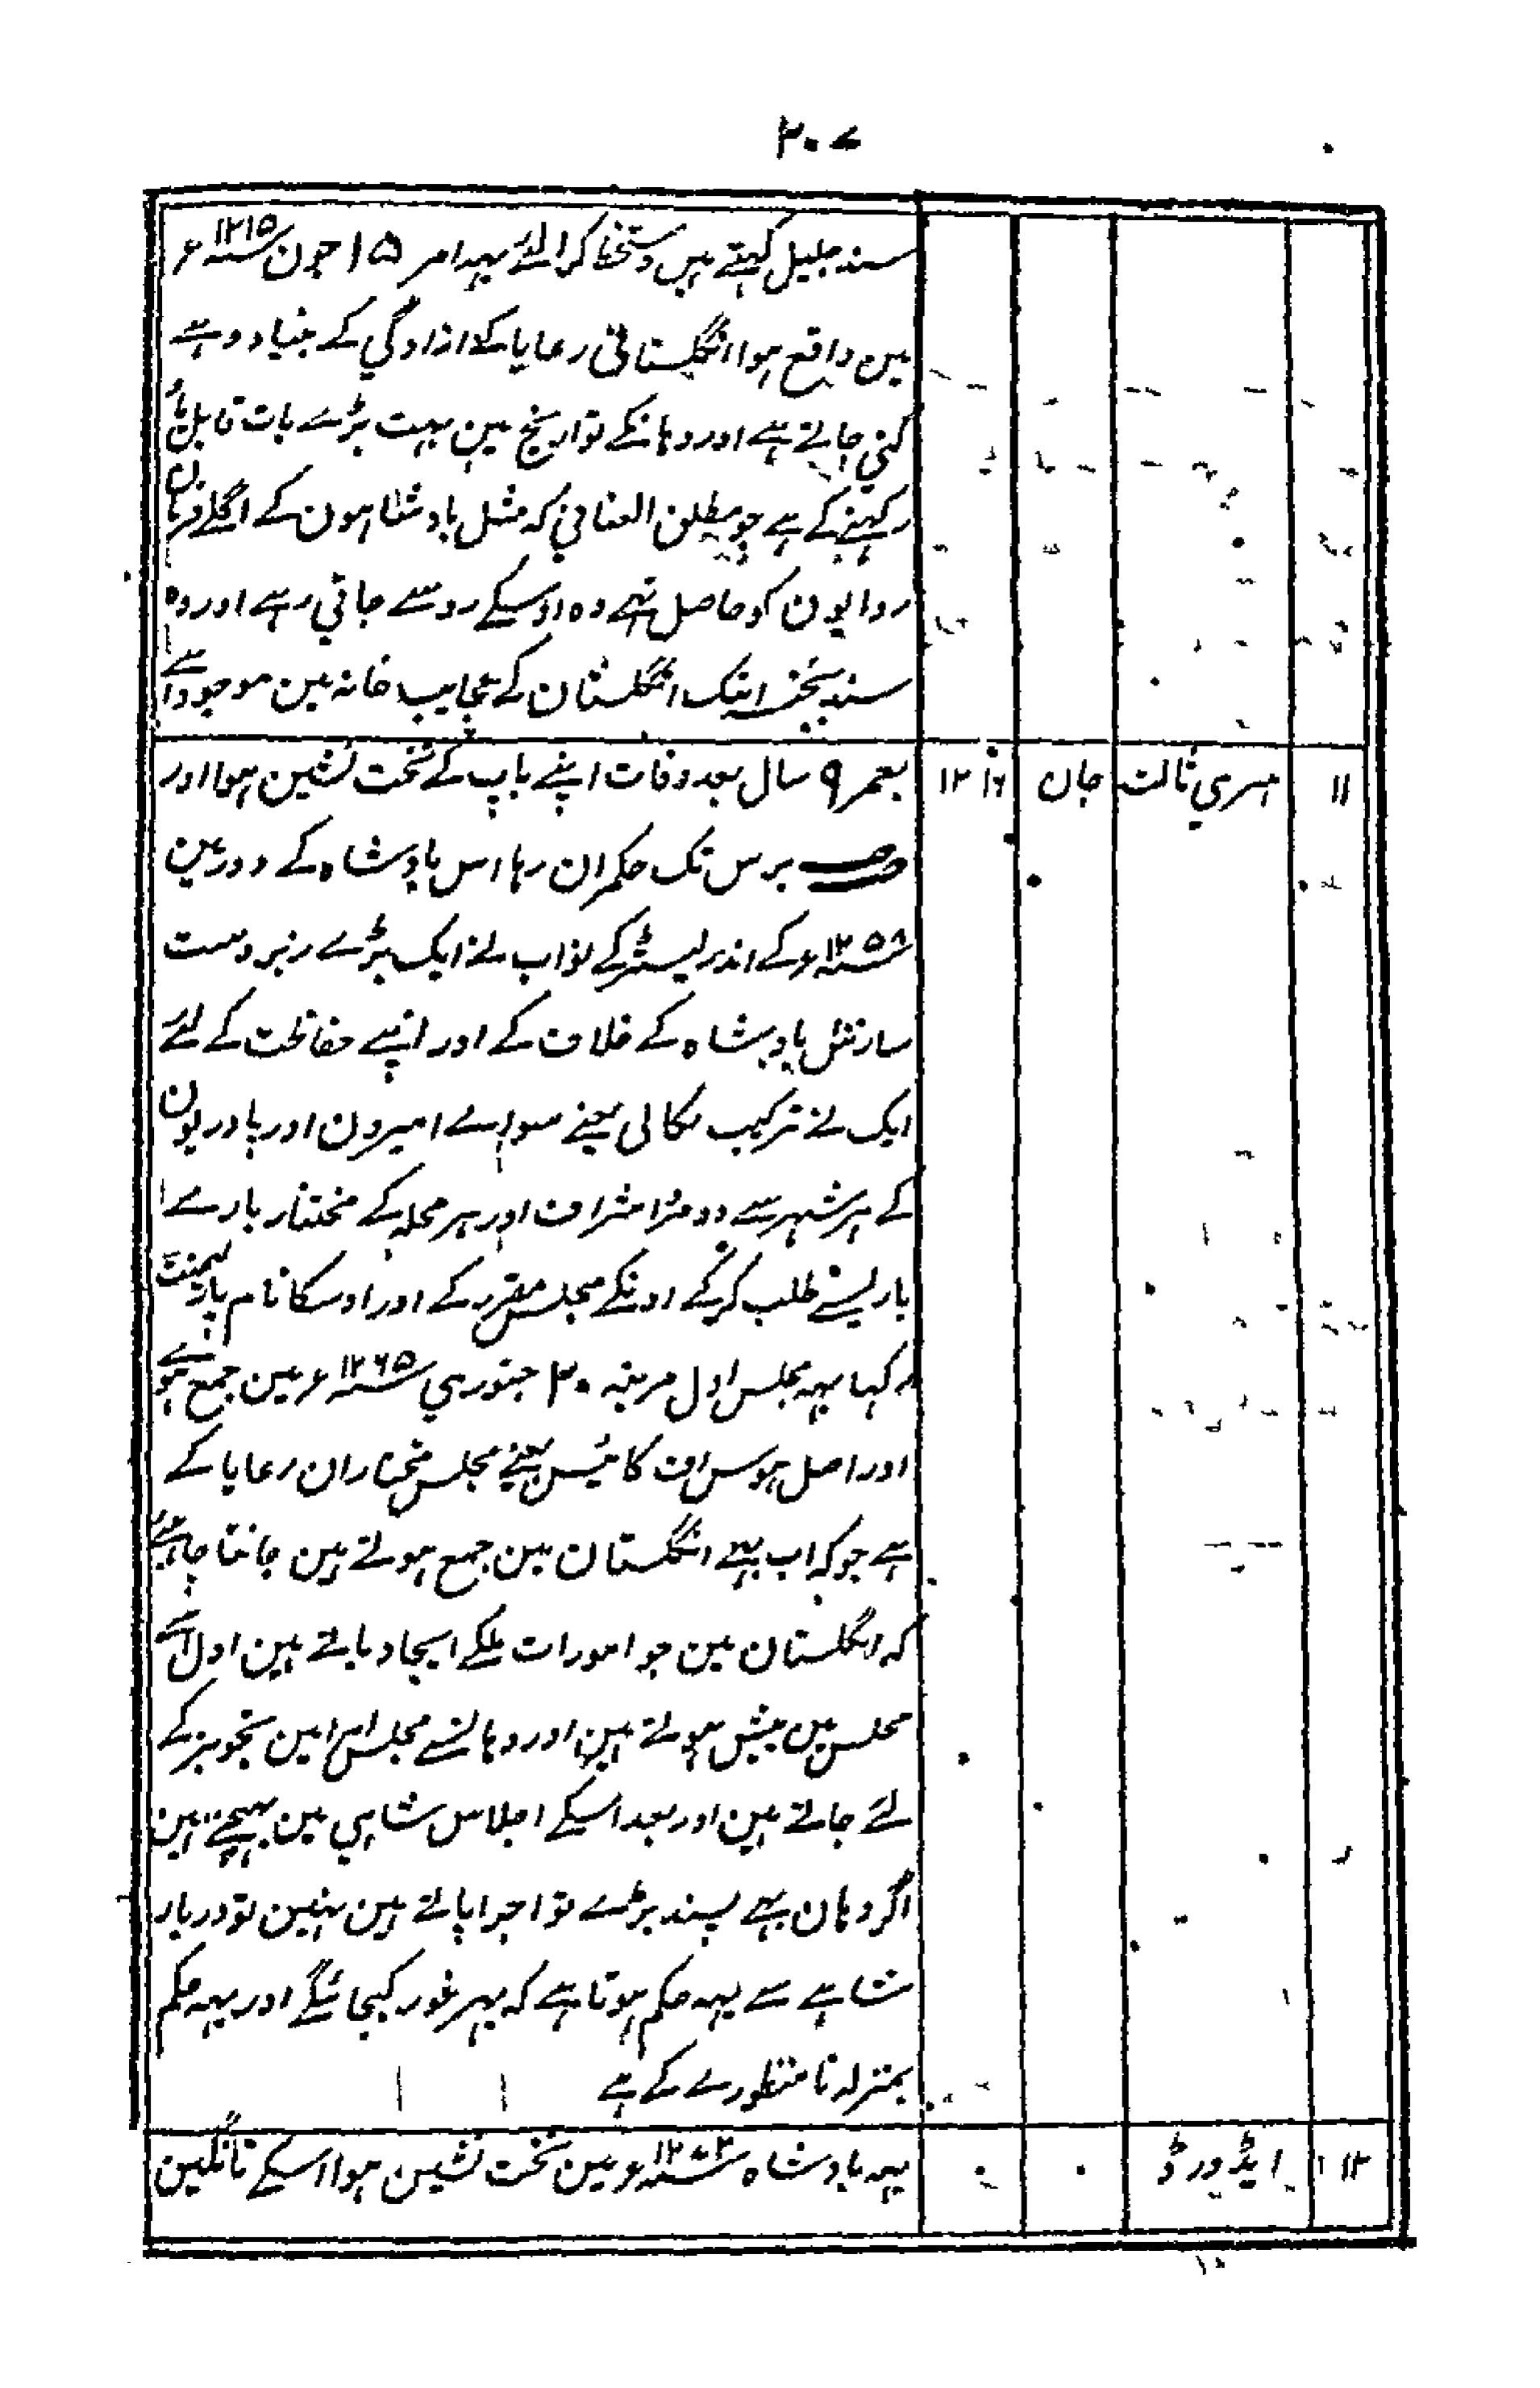 ۲۰۷
سند جلیل کہتے ہیں دستخط کرالئے یہہ امر ۱۵ جون سنہ ۱۲۱۵ ء
مین واقع ہوا انگلستانی رعایا کے ازادگی کے بنیاد وہے
گنی جاتے ہے اور وہانکے تواریخ مین بہت بڑے بات قابل یاد
رکہنے کے ہے جو مطلق العنانی کہ مثل بادشاہون کے اگلے فرمان
روایون کو حاصل تہے وہ اوسیکے رو سے جاتی رہے اور وہ
سند بجنسہ ابتک انگلستان کے عجایب خانہ مین موجود ہے
۱۱ ہنری ثالث جان ۱۲۱۶ بعمر ۹ سال بعد وفات اپنے باپ کے تخت نشین ہوا اور
برس تک حکمران رہا اس بادشاہ کے دور مین
سنہ ۱۲۵۸ ء کے اندر لیسٹر کے نواب نے ایک بڑے زبردست
سازش بادشاہ کے خلاف کے اور اپنے حفاظت کے لئے
ایک نے ترکیب نکالی یعنے سواے امیرون اور پادریون
کے ہر شہر سے دو دو اشراف اور ہر محلہ کے مختار بارے
بارلینے طلب کرکے اونکے مجلس مقرر کے اور اوسکا نام پارلیمنٹ
رکہا یہہ مجلس اول مرتبہ ۲۰ جنوری سنہ ۱۲۶۵ ء مین جمع ہوے
اور اصل ہوس اف کامنس یعنے مجلس مختاران رعایا کے
ہے جو کہ اب بہے انگلستان مین جمع ہوتے ہین جاننا چاہئے
کہ انگلستان مین جو امورات ملکے ایجاد پاتے ہین اول اسے
مجلس مین پیش ہوتے ہین اور وہانسے مجلس امرا مین تجویز کے
لئے جاتے ہین اور بعد اسکے اجلاس شاہی مین پہیچتے ہین
اگر وہان بہے پسند پڑے تو اجرا پاتے ہین نہین تو دربار
شاہے سے یہہ حکم ہوتا ہے کہ پہر غور کیجائیگے اور یہہ حکم
بمنزلہ نا منظورے کے ہے
۱۲ ایڈورڈ ۰ ۰ یہہ بادشاہ سنہ ۱۲۷۲ ء مین تخت نشین ہوا اسکے